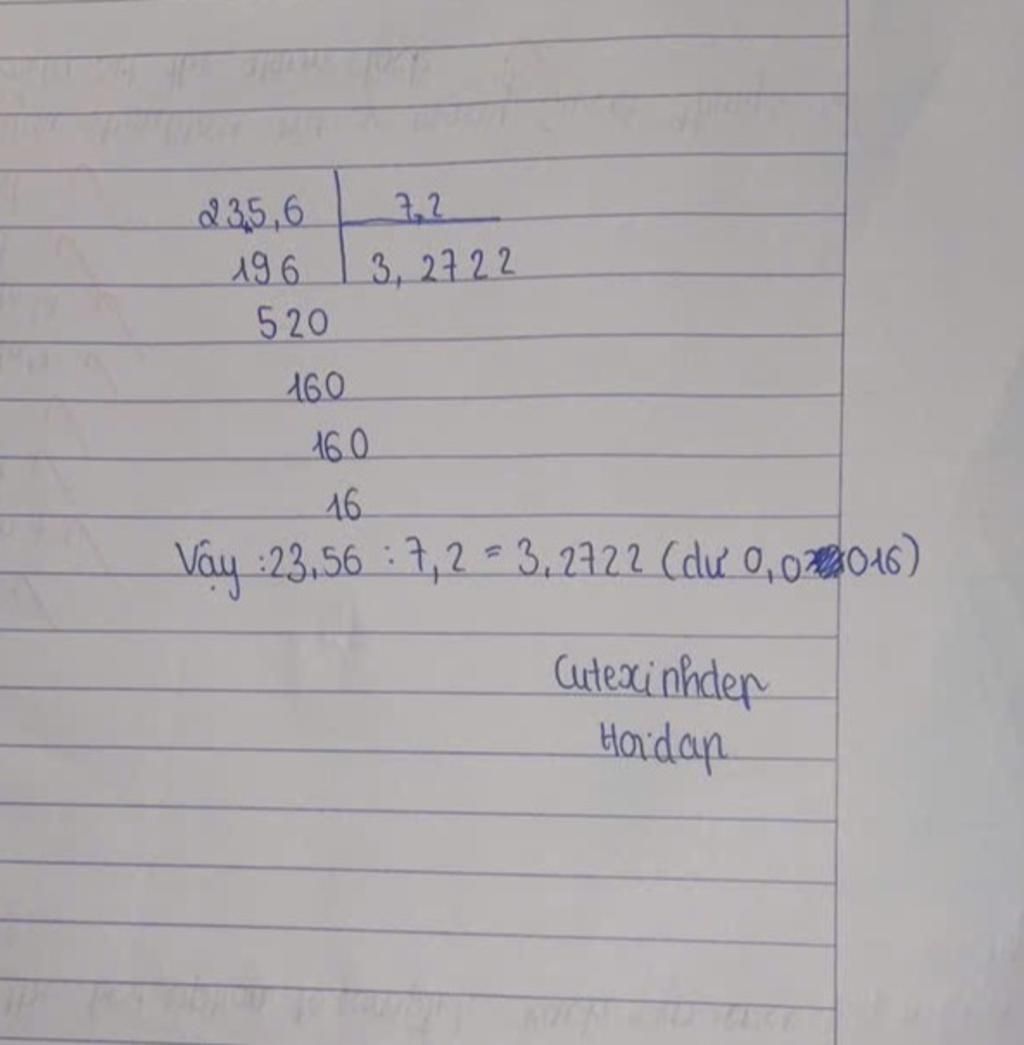 23,5,6 7,2
196 3,2722
520
160
160
16
Vậy :23,56 : 7,2 = 3,2722 (dư 0,0016)
Cutexinhdep
Hoidap